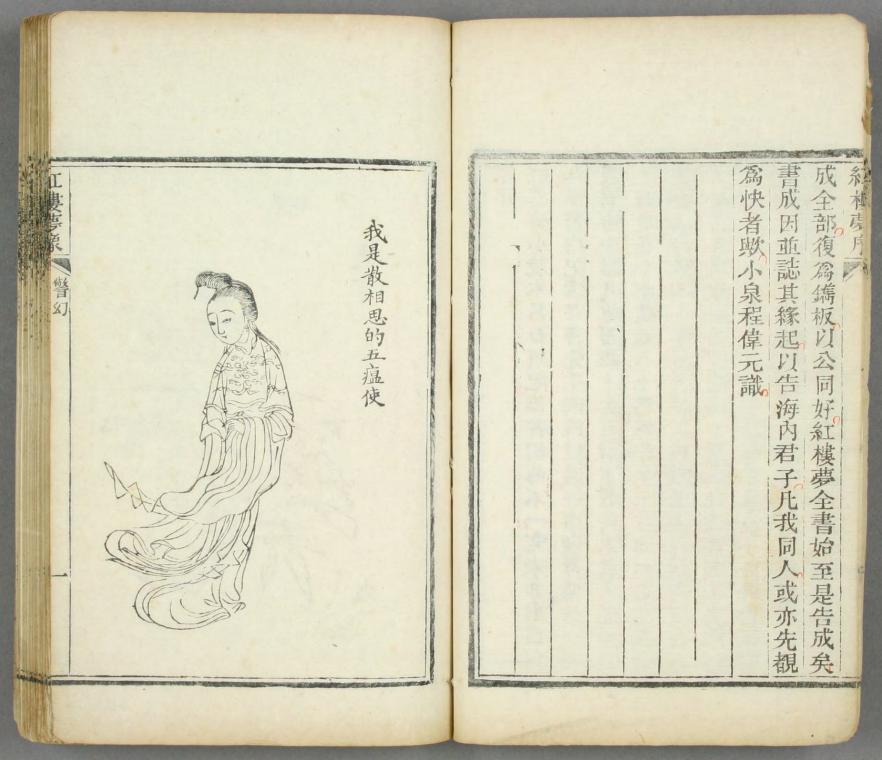 紅樓夢序
成全部復爲鐫板以公同好紅樓夢全書始至是告成矣
書成因並誌其緣起以告海內君子凡我同人或亦先覩
爲快者歟小泉程偉元識
我是散相思的五瘟使
紅樓夢像
警幻
一